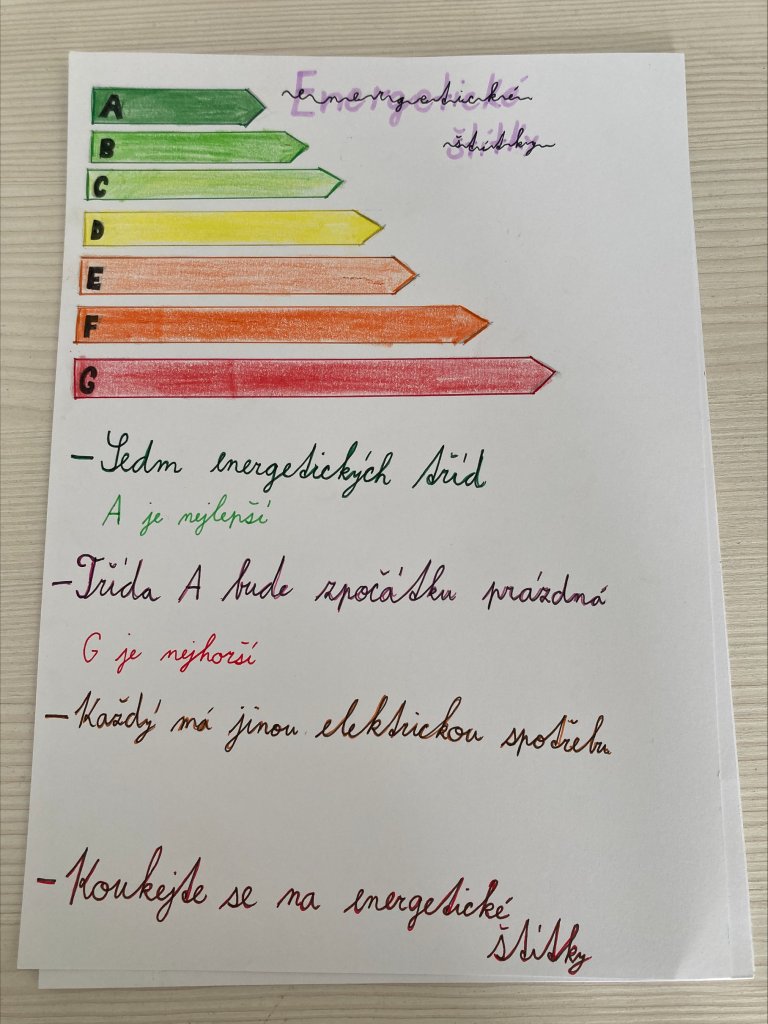 Energetické
štítky
A
B
C
D
E
F
G
- Sedm energetických tříd
A je nejlepší
- Třída A bude zpočátku prázdná
G je nejhorší
- Každý má jinou elektrickou spotřebu
- Koukejte se na energetické
štítky